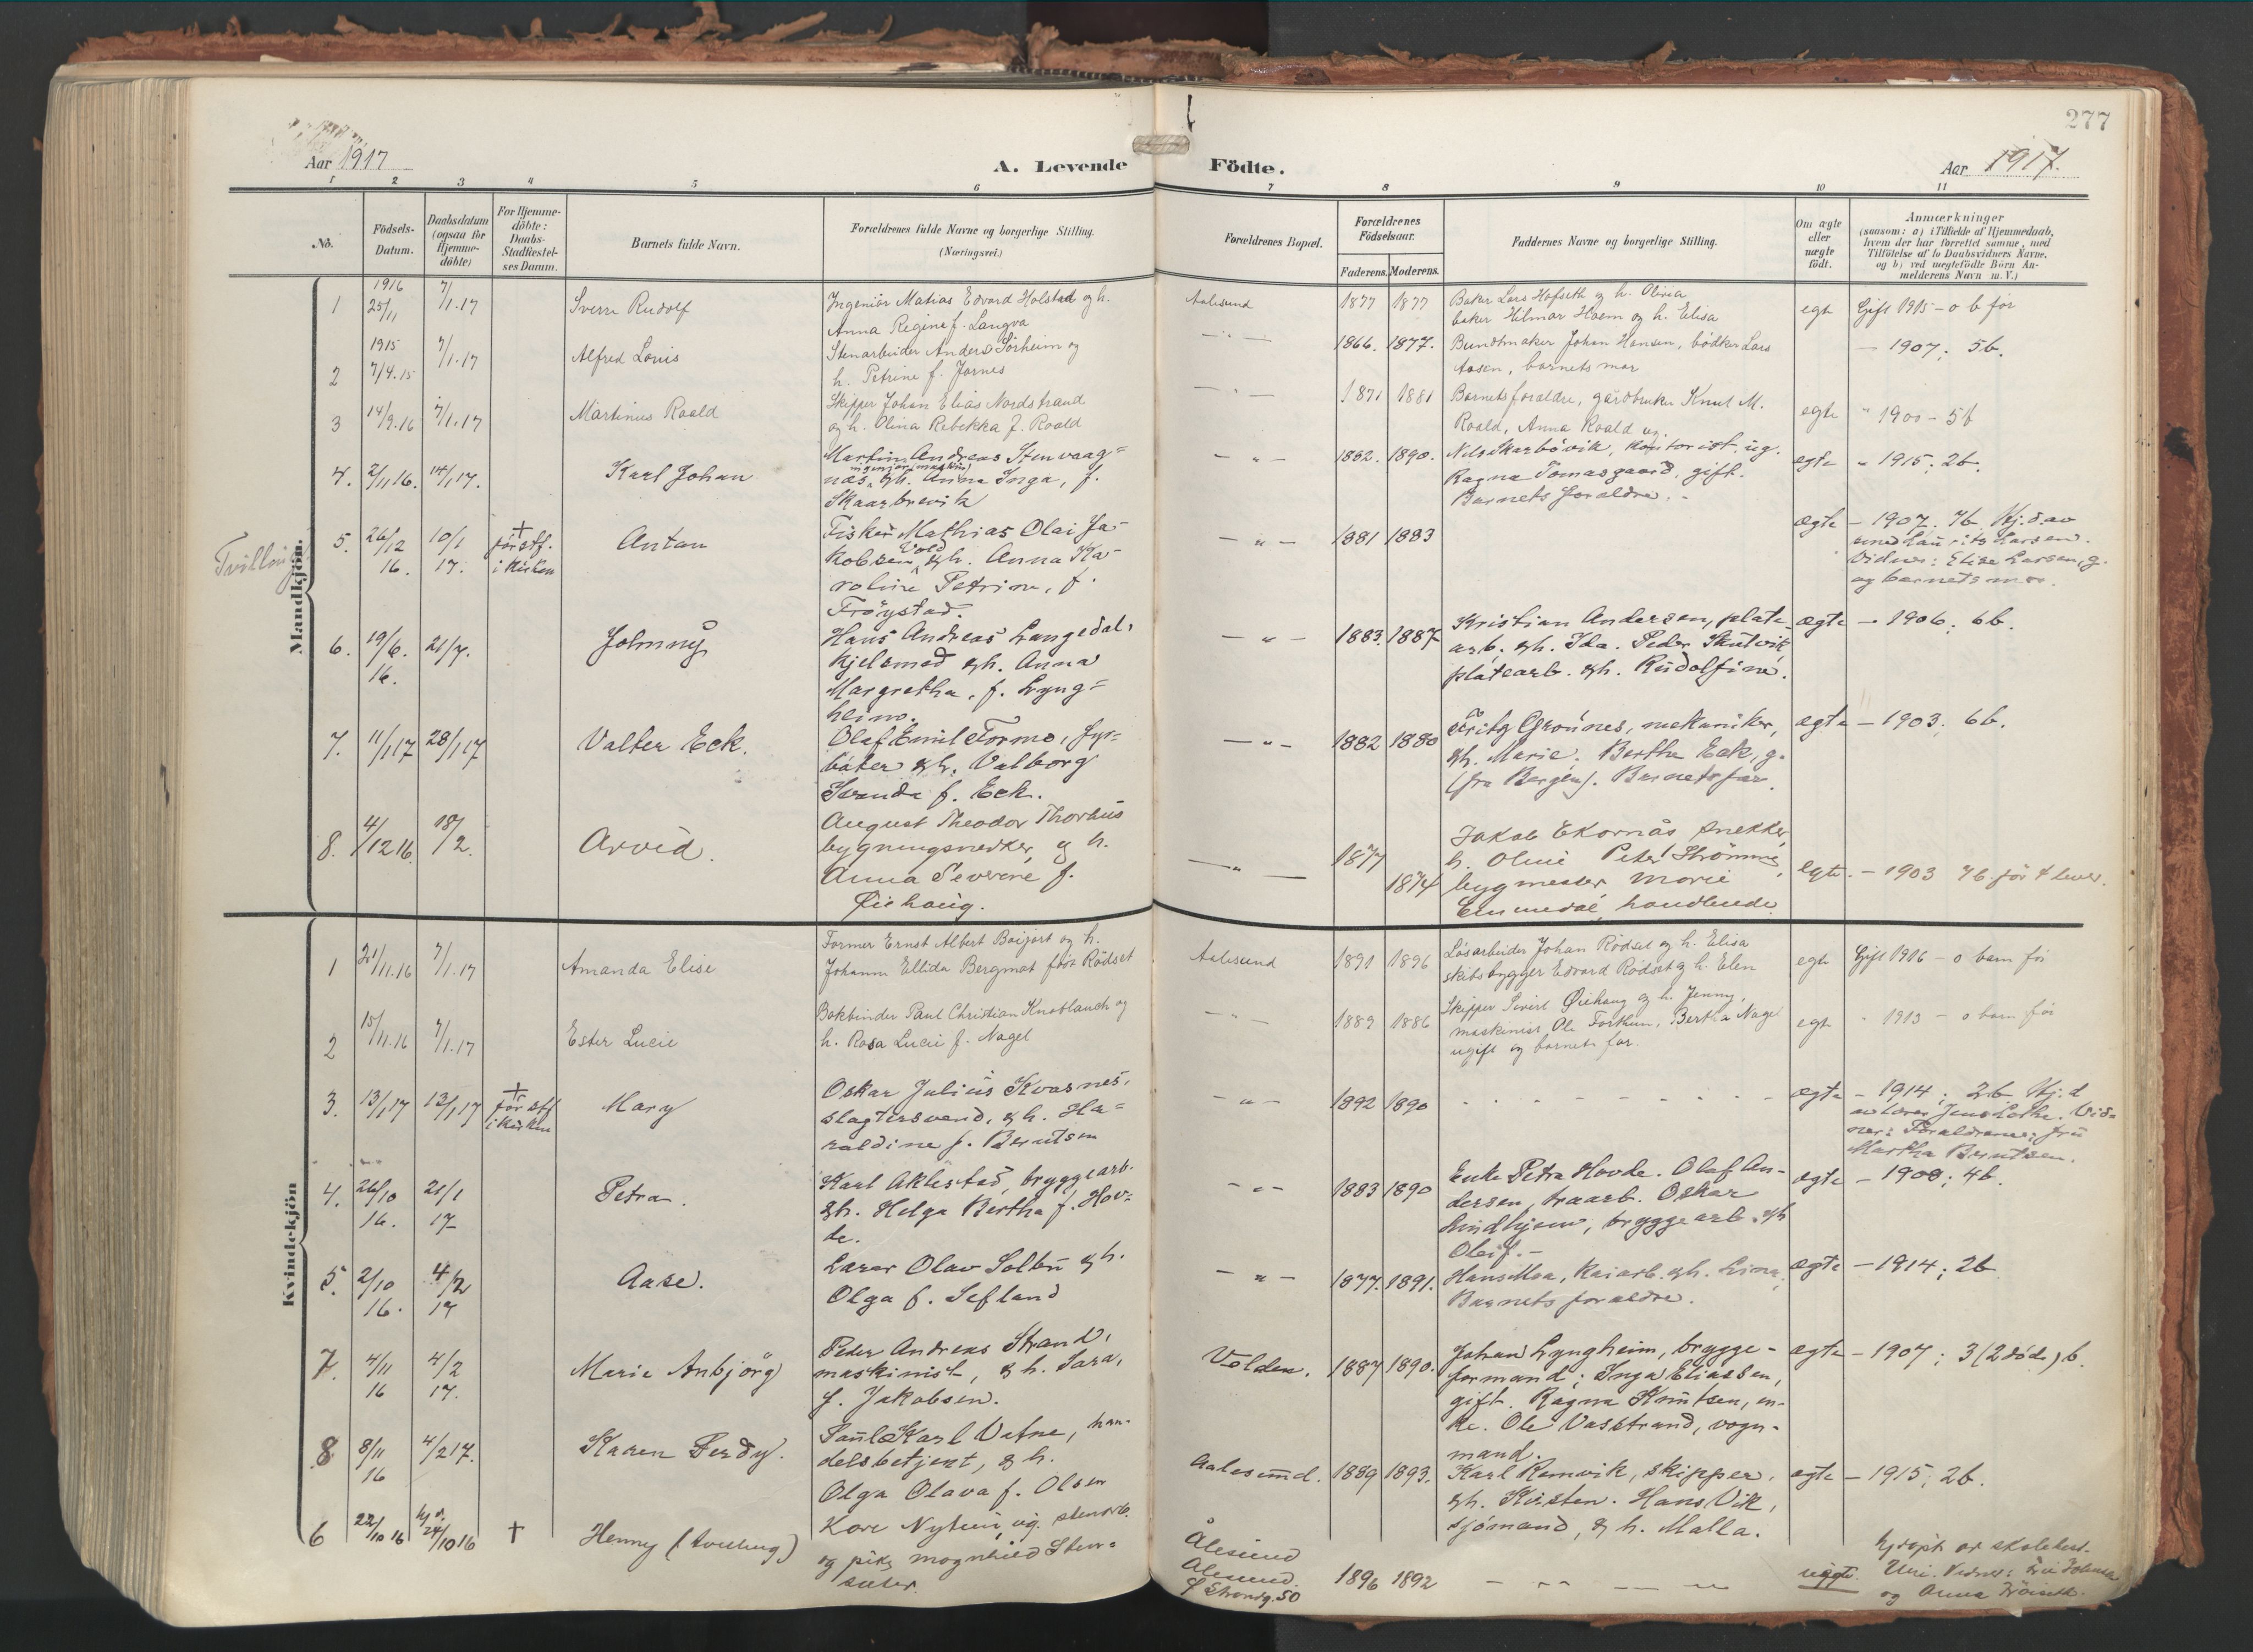 277
Aar 1917
A. Levende Födte.
Aar 1917.
1 2 3 4 5 6 7 8 9 10 11
No.
Födsels-
Datum.
Daabsdatum
(ogsaa for
Hjemme-
döbte)
For Hjemme-
döbte:
Daabs-
Stadfæstel-
ses Datum.
Barnets fulde Navn.
Forældrenes fulde Navne og borgerlige Stilling.
(Næringsvei.)
Forældrenes Bopæl.
Forældrenes
Födselsaar.
Faderens. Moderens.
Faddernes Navne og borgerlige Stilling.
Om ægte
eller
uægte
födt.
Anmærkninger
(saasom: a) i Tilfælde af Hjemmedaab,
hvem der har forrettet samme, med
Tilföielse af to Daabsvidners Navne.
og b) ved uegtefödte Börn An-
melderens Navn m. V.)
Mandkjön.
1
1916
25/11
7/1.17
Sverre Rudolf
Ingeniör Matias Edvard Holstad og h.
Anna Regine f. Langva
Aalesund
1877 1877
Baker Lars Hofseth og h. Olivia
baker Hilmar Hoem og h. Elisa
egte
Gift 1915 - 0 b för
2
1915
7/4.15
7/1.17
Alfred Louis
Stenarbeider Anders Sörheim og
h. Petrine f. Jarnes
- " -
1866. 1877.
Bundtmaker Johan Hansen, bödker Lars
Aasen, barnets mor
- 1907; 5b.
3
14/9.16
7/1.17
Martinus Roald
Skipper Johan Elias Nordstrand
og h. Olina Rebekka f. Roald
- " -
1871 1881
Barnets forældre, gårdbruker Knut M.
Roald, Anna Roald ug.
egte
" 1900 - 5b
4.
2/11 16.
14/1 17.
Karl Johan
Martin Andreas Stenvaag=
ingeniör (maskin)
næs, & h. Anna Inga, f.
Skaarbrevik
- " -
1882. 1890.
Nils Skarbövik, kontorist ug.
Ragna Tomasgaard, gift.
Barnets forældre. -
egte
" 1915; 2b.
Tvilling
5.
26/12
16.
10/1
17.
+
för stf.
i kirken
Anton
Fisker Mathias Olai Ja-
kobsen Vold & h. Anna Ka-
roline Petrine, f.
Fröystad.
- " -
1881 1883
ægte
- 1907. 7b. Hj.d. av
Laurits Larsen.
Vidner: Elise Larsen, g.
og barnets mor.
6.
19/6.
16.
21/7.
Johnny
Hans Andreas Langedal,
kjelsmed & h. Anna
Margretha, f. Lyng=
heim.
- " -
1883. 1887
Kristian Andersen, plate
arb. & h. Ida. Peder Skutvik
platearb. & h. Rudolfine.
ægte
- 1906; 6b.
7.
11/1 17
28/1 17
Valter Eck.
Olaf Emil Formo, fyr=
böter & h. Valborg
Svanda f. Eck.
- " -
1882 1880
Fritz Grönnes, mekaniker,
& h. Marie. Berthe Eck, g.
(fra Bergen). Barnets far.
ægte
- 1903; 6b.
8.
4/12 16.
18/2.
Arvid.
August Theodor Thorhus
bygningsnedker, og h.
Anna Severine f.
Öiehaug.
- " -
1877
1874
Jakob Ekornås snekker
h. Oline Peter Strömme,
bygmester Marie
Emmedal, handlende
egte.
- 1903 7b. för 4 lever.
Kvindekjön
1
21/11.16
7/1.17
Amanda Elise
Former Ernst Albert Boijort og h.
Johanne Ellida Bergmat född Rödset
Aalesund
1891 1896
Lösarbeider Johan Rödset og h. Elisa
skibsbygger Edvard Rödset og h. Elen
egte
Gift 1916 - 0 barn för
2
15/11.16
7/1.17
Ester Lucie
Bokbinder Paul Christian Knoblauch og
h. Rosa Lucie f. Nagel
- " -
1889 1886
Skipper Sivert Öiehaug og h. Jenny,
maskinist Ole Forthun, Bertha Nagel
ugift og barnets far.
egte
" 1913 - 0 barn för
3.
13/1 17
13/1 17
+
för stf
i kirken
Mary
Oskar Julius Kvasnes,
slagtersvend, & h. Ha=
raldine f. Berntsen
- " -
1892 1890
- - - - - - - -
ægte
- 1914; 2b Hj.d
av lærer Jens Lothe. Vid=
ner: Forældrene; fru
Martha Berntsen.
4.
26/10
16.
21/1
17
Petra.
Karl Aklestad, bryggearb.
& h. Helga Bertha f. Hov=
de.
- " -
1883 1890
Enke Petra Hovde. Olaf An-
dersen, traarb. Oskar
Lindhjem, bryggearb. & h
Oleif. -
ægte
- 1900; 4b.
5.
2/10
16.
4/2
17
Aase.
Lærer Olav Soltun & h.
Olga f. Sefland
- " -
1877. 1891.
Hans Moa, kaiarb. & h. Lina,
Barnets forældre.
ægte
- 1914; 2b
7.
4/11
16
4/2
17.
Marie Anbjörg
Peder Andreas Strand,
maskinist, & h. Sara,
f. Jakobsen.
Volden.
1887 1890.
Johan Lyngheim, brygge-
formand; Inga Eliassen,
gift. Ragna Knutsen, en-
ke. Ole Vasstrand, vogn-
mand.
ægte
- 1907; 3 (2 döde) b.
8
8/11
16
4/2 17.
Karen Ferdy.
Paul Karl Vatne, han-
delsbetjent, & h.
Olga Olava f. Olsen
Aalesund.
1889 1893.
Karl Remvik, skipper,
& h. Kirsten. Hans Vik,
sjömand, & h. Malla.
ægte
- 1915; 2b.
6
22/10 16
hj.d.
24/10 16
+
Henny
Kore Nytun, ug. stenarb.
og pike Magnhild Sten=
sæter.
Ålesund
Alesund.
Strandg. 50
1896 1892
- - - -
uægte
hj.döpt av
og Anna